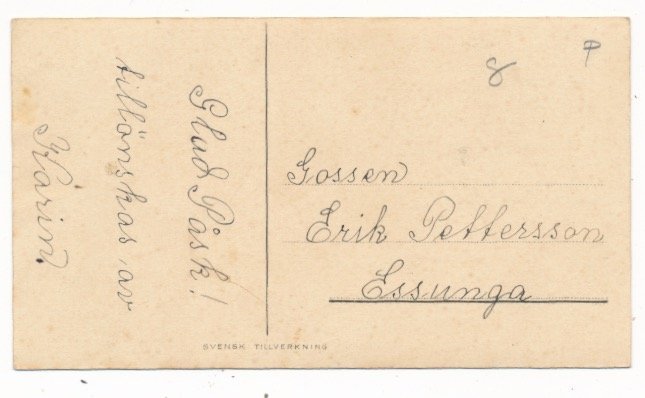 Glad Påsk!
tillönskas av
Karin.
8
P
Gossen
Erik Pettersson
Essunga
SVENSK TILLVERKNING